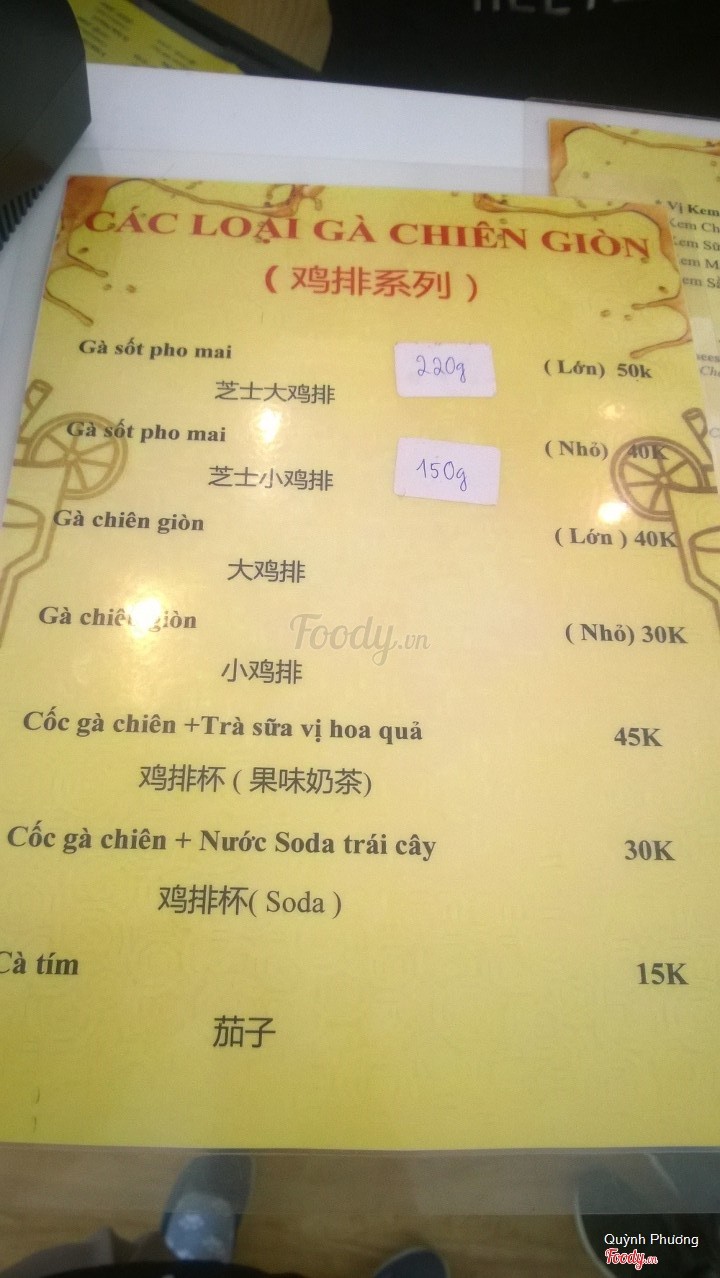 CÁC LOẠI GÀ CHIÊN GIÒN
( 鸡排系列 )
Gà sốt pho mai 220g ( Lớn) 50k
芝士大鸡排
Gà sốt pho mai 150g ( Nhỏ) 40K
芝士小鸡排
Gà chiên giòn ( Lớn ) 40K
大鸡排
Gà chiên giòn ( Nhỏ) 30K
小鸡排
Foody.vn
Cốc gà chiên +Trà sữa vị hoa quả 45K
鸡排杯 ( 果味奶茶)
Cốc gà chiên + Nước Soda trái cây 30K
鸡排杯( Soda )
Cà tím 15K
茄子
Vị Kem
Kem
Quỳnh Phương
Foody.vn